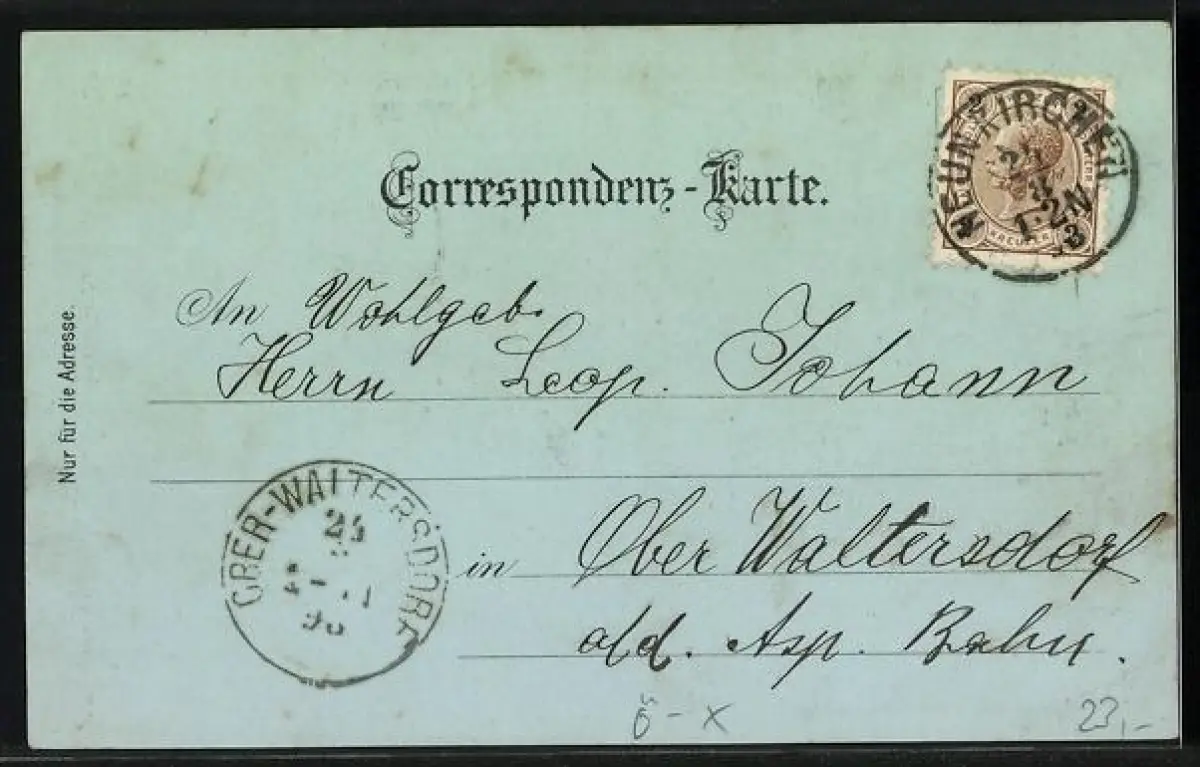 Correspondenz-Karte.
NEUNKIRCHEN
2
2
KREUZER
1·2N
Nur für die Adresse.
An Wohlgeb.
Herrn Leop. Johann
OBER-WALTERSDORF
24
in Ober Waltersdorf
a/d. Asp. Bahn.
ö - x
23,-